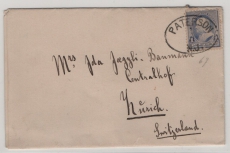 PATERSON
N.J.
Mrs Ida Jaggli-Baumann
Centralhof.
Zürich
Switzerland.